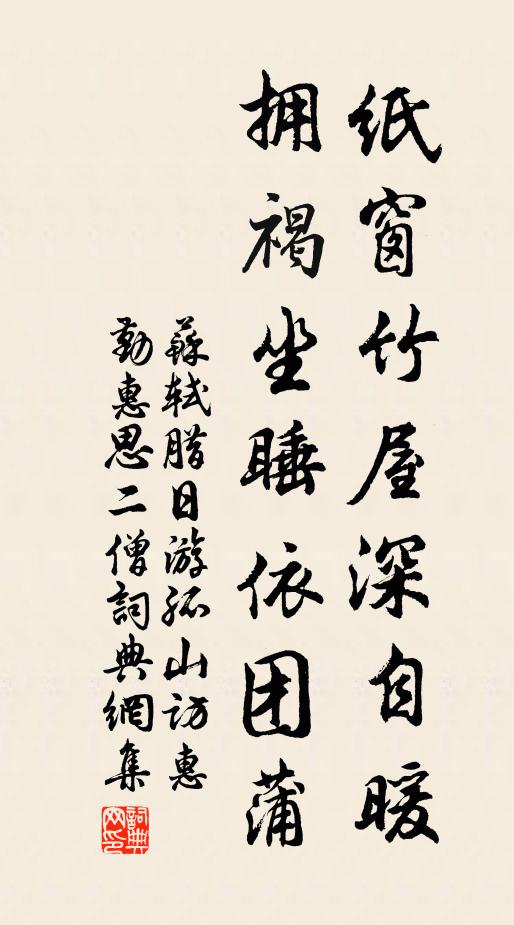 纸窗竹屋深自暖
拥褐坐睡依团蒲
蘇軾腊日游孤山訪惠
勤惠思二僧詞典網集
詞典
网印